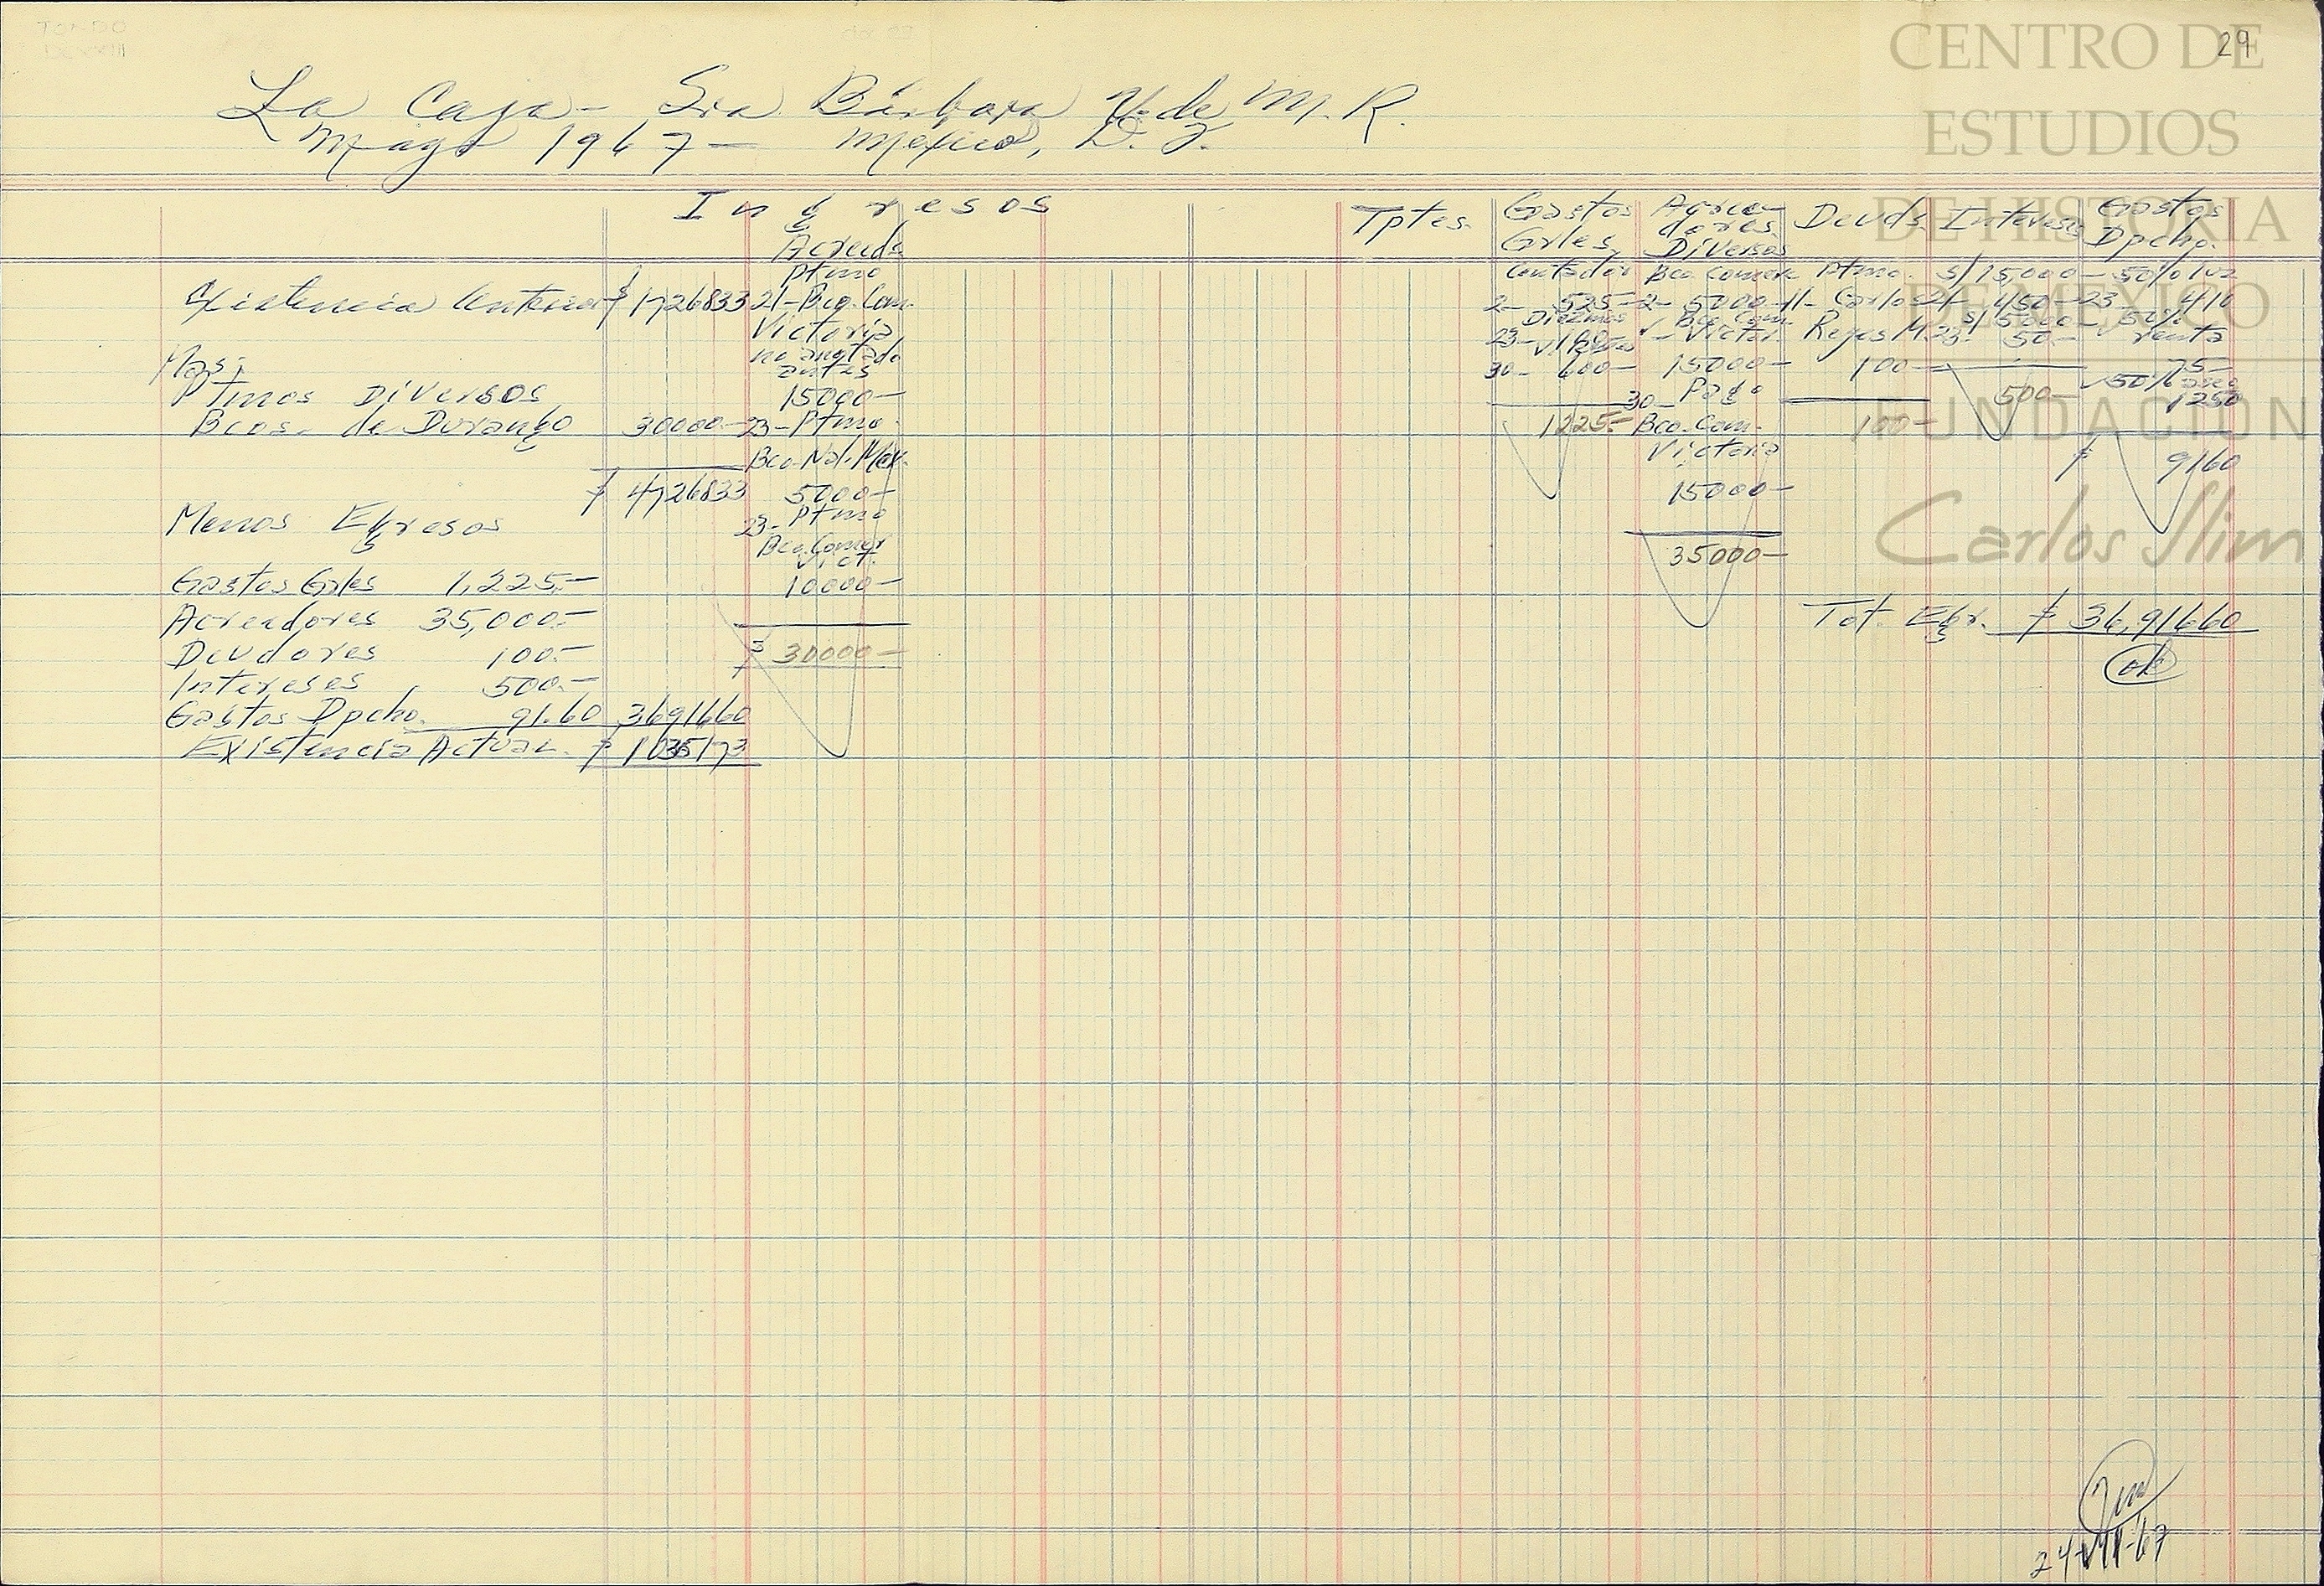 29
La Caja - Sra Bárbara V. de M. R.
Mayo 1967 - México, D. F.
Ingresos
Acreeds.
Ptmo
21- Bco. Com.
Victoria
no anotado
antes
15000-
23- Ptmo.
Bco. Nal. Mex.
5000-
23- Ptmo
Bco. Comer
Vict.
10000-
$ 30000-
Existencia Anterior $ 1726833
Mas:
Ptmos Diversos
Bcos. de Durango 30000-
$ 4726833
Menos Egresos
Gastos Grles 1,225.-
Acreedores 35,000.-
Deudores 100.-
Intereses 500.-
Gastos Dpcho. 91.60 3691660
Existencia Actual. $ 1035173
Tptes.
Gastos
Grles.
Contador
2- 525-
Diezmos
23- 100-
30- 600-
1225-
Acree-
dores
Diversos
Bco. Comerc
2- 5000-
Bco. Com.
Victor.
15000-
30- Pago
Bco. Com.
Victoria
15000-
35000-
Deuds.
Ptmo.
11- Carlos
Reyes M.
100-
100-
Intereses
s/15,000-
21- 450-
s/5000-
23- 50.-
500-
Gastos
Dpcho.
50% luz
23- 410
50%
renta
75-
50% aseo
1250
$ 9160
Tot. Egr. $ 36,91660
ok
24-VII-67
CENTRO DE
ESTUDIOS
DE HISTORIA
DE MEXICO
FUNDACION
Carlos Slim